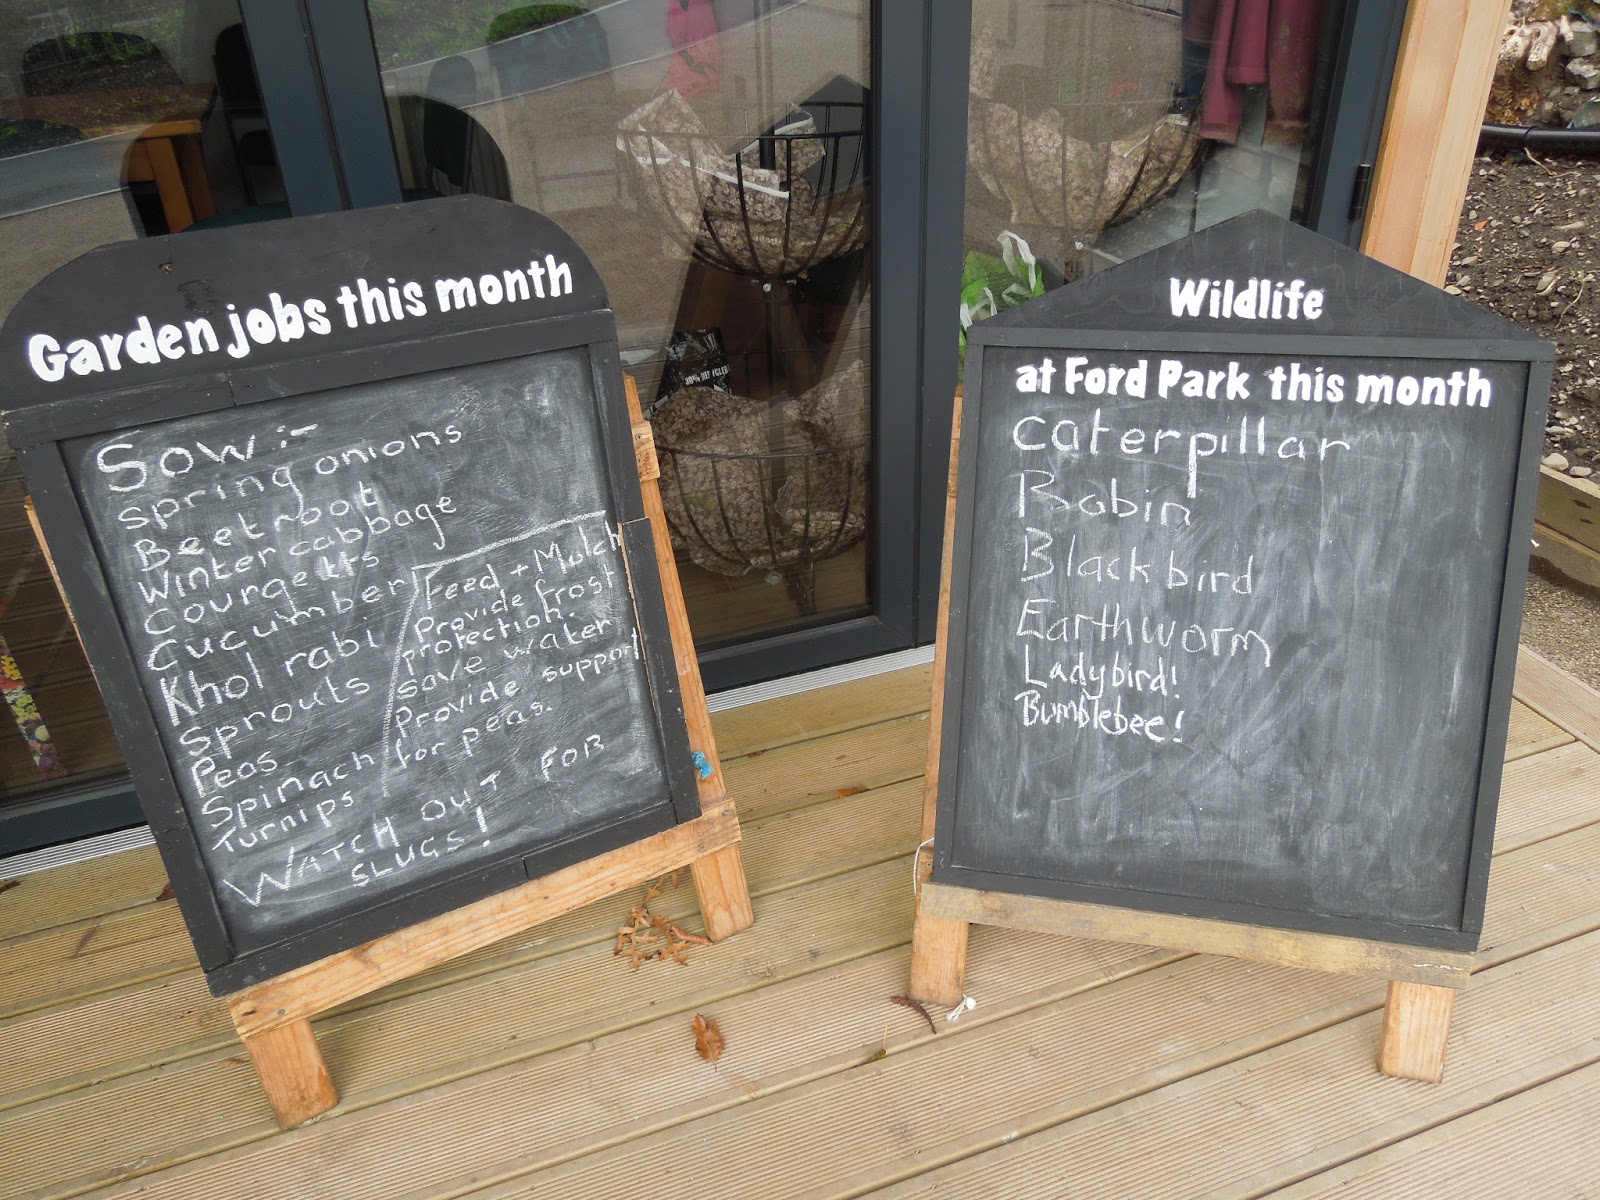 Garden jobs this month
Sow:-
Spring onions
Beetroot
Winter cabbage
Courgetts
Cucumber
Khol rabi
Sprouts
Peas
Spinach
Turnips
Feed + Mulch
Provide frost
protection.
save water
Provide support
for peas.
WATCH OUT FOR
SLUGS!
Wildlife
at Ford Park this month
Caterpillar
Robin
Blackbird
Earthworm
Ladybird!
Bumblebee!